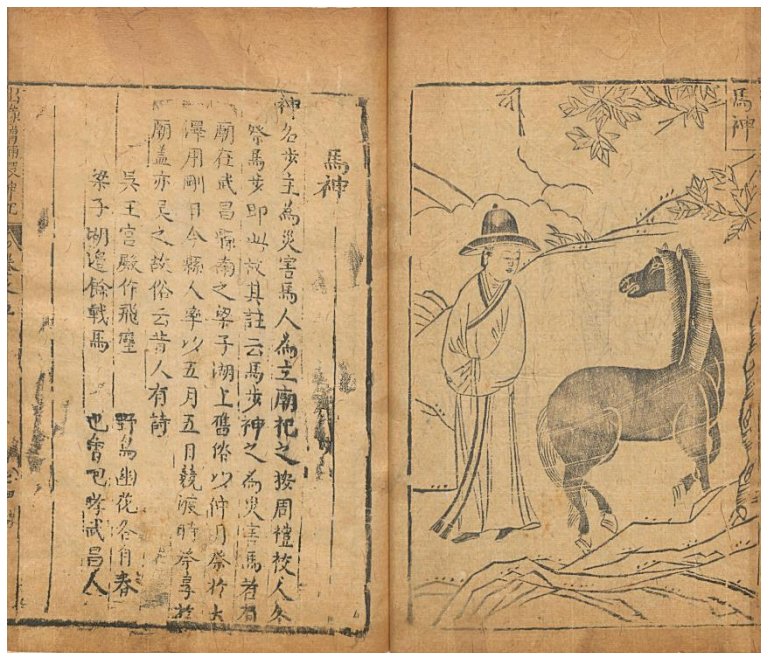 馬神
馬神
神名步主為災害馬人為立廟祀之按周禮校人冬
祭馬步即此故其註云馬步神之為災害馬者有
廟在武昌縣南之梁子湖上舊俗以仲月祭於大
澤用剛日今縣人率以五月五日競渡時祭享於
廟蓋亦灵之故俗云昔人有詩
吳王宮殿作飛塵 野鳥幽花各自春
梁子湖邉餘戰馬 也曾 武昌人
出像增補搜神記
卷之